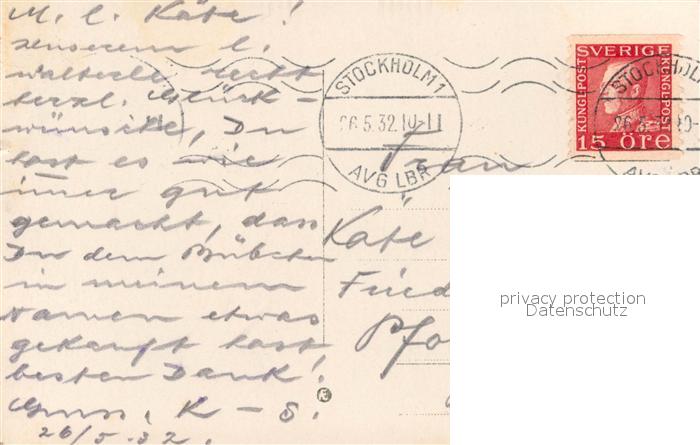 M. l. Käte!
unserem l.
Walterle recht
herzl. Glück-
wünsche, Du
hast es wie
immer gut
gemacht, dass
Du dem Bübchen
in meinem
Namen etwas
gekauft hast,
besten Dank!
Gruss, K - S.
26/5.32.
STOCKHOLM 1
26.5.32.10-11
AVG LBR
SVERIGE
KUNGL·POST
KUNGL·POST
15 ÖRE
STOCKHOLM
26.5.
Frau
Käte
Pfo
privacy protection
Datenschutz